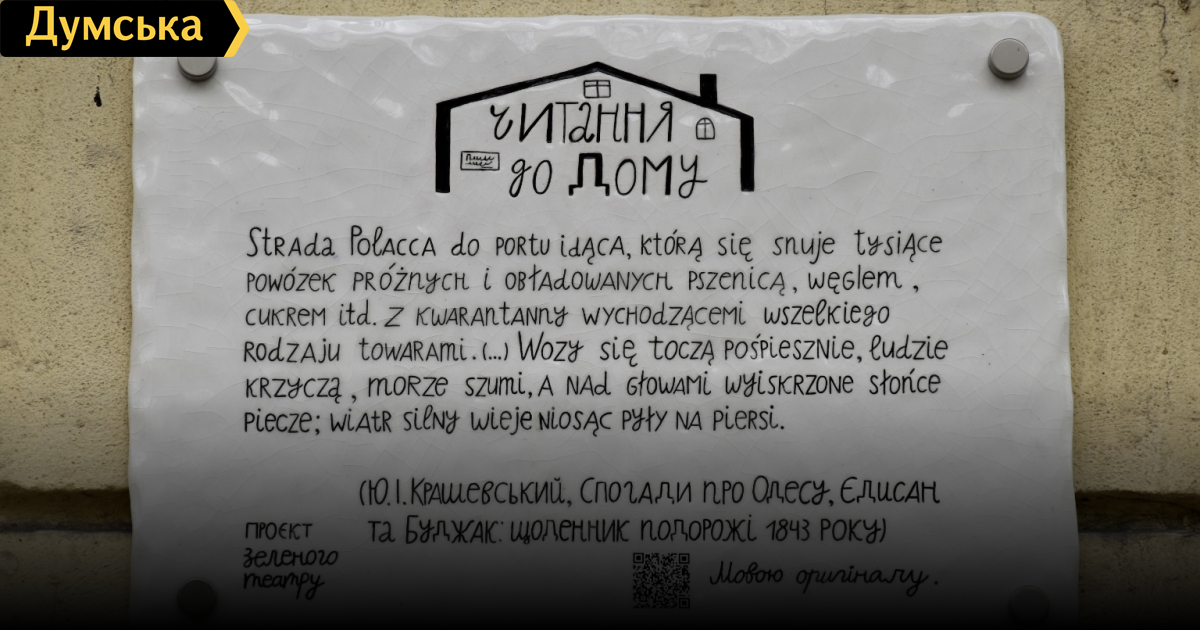 Думська
читання
до дому
Strada Połacca do portu idąca, którą się snuje tysiące
powózek próżnych i obładowanych pszenicą, węglem,
cukrem itd. Z kwarantanny wychodzącemi wszelkiego
rodzaju towarami. (...) Wozy się toczą pośpiesznie, ludzie
krzyczą, morze szumi, a nad głowami wyiskrzone słońce
piecze; wiatr silny wieje niosąc pyły na piersi.
(Ю.І.Крашевський, Спогади про Одесу, Єдисан
та Буджак: щоденник подорожі 1843 року)
проєкт
зеленого
театру
Мовою оригіналу.